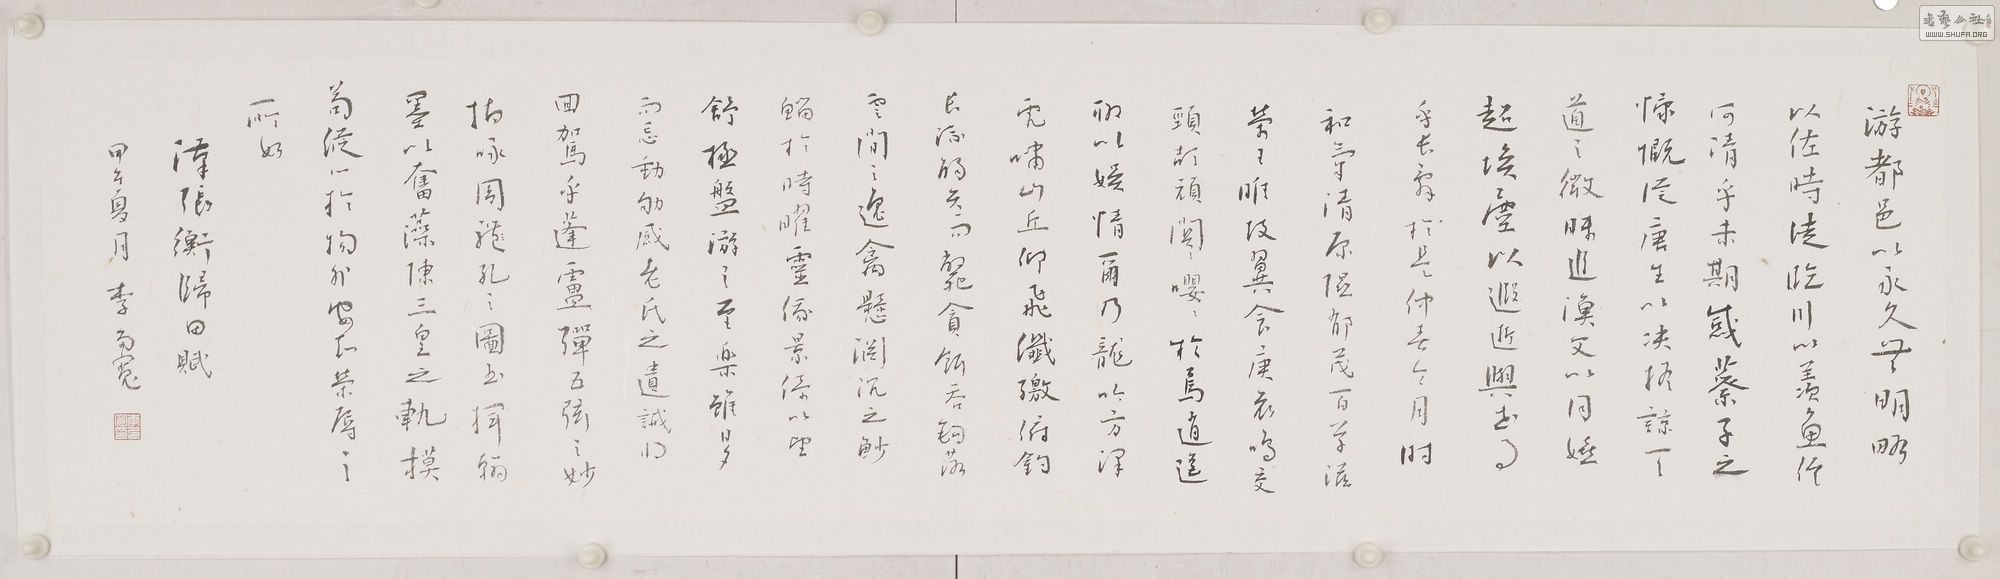 游都邑以永久無明略
以佐時徒臨川以羨魚俟
河清乎未期感蔡子之
慷慨從唐生以決疑諒天
道之微昧追漁父以同嬉
超埃塵以遐逝與世事
乎長辭於是仲春令月时
和氣清原隰郁茂百草滋
榮王雎鼓翼倉庚哀鳴交
頸頡頏關關嚶嚶於焉逍遙
聊以娛情爾乃龍吟方澤
虎嘯山丘仰飛纖繳俯釣
長流觸矢而斃貪餌吞鉤落
雲間之逸禽懸淵沉之魦
鰡於時曜靈俄景係以望
舒極盤游之至樂雖日夕
而忘劬感老氏之遺誡將
回駕乎蓬廬彈五弦之妙
指咏周孔之圖書揮翰
墨以奮藻陳三皇之軌模
苟從心於物外安知榮辱之
所如
漢張衡歸田賦
甲午夏月 李
書藝公社
WWW.SHUFA.ORG